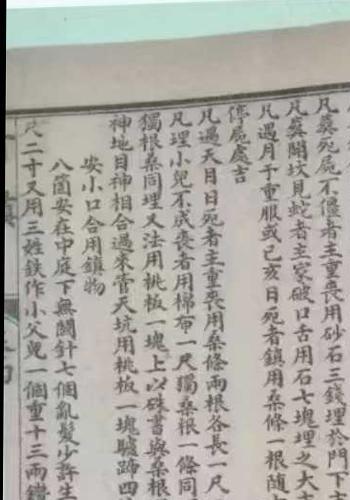 凡葬死屍不僵者主重喪用砂石三錢埋於門下
凡葬開坟見蛇者主家破口舌用石七塊埋之大
凡遇月子重服或己亥日死者鎮用桑條一根随
停屍處吉
凡遇天月日死者主重喪用桑條兩根各長一尺
凡埋小兒不成喪者用棉布一尺獨桑根一條同
獨根桑同埋又法用桃板一塊上以硃書與桑根
神地目神相合過來管天坑用桃板一塊驢蹄四
安小口合用鎮物
八箇安在中庭下無關針七個亂髮少許生
尺二寸又用三姓鉄作小父兒一個重十三兩鏽